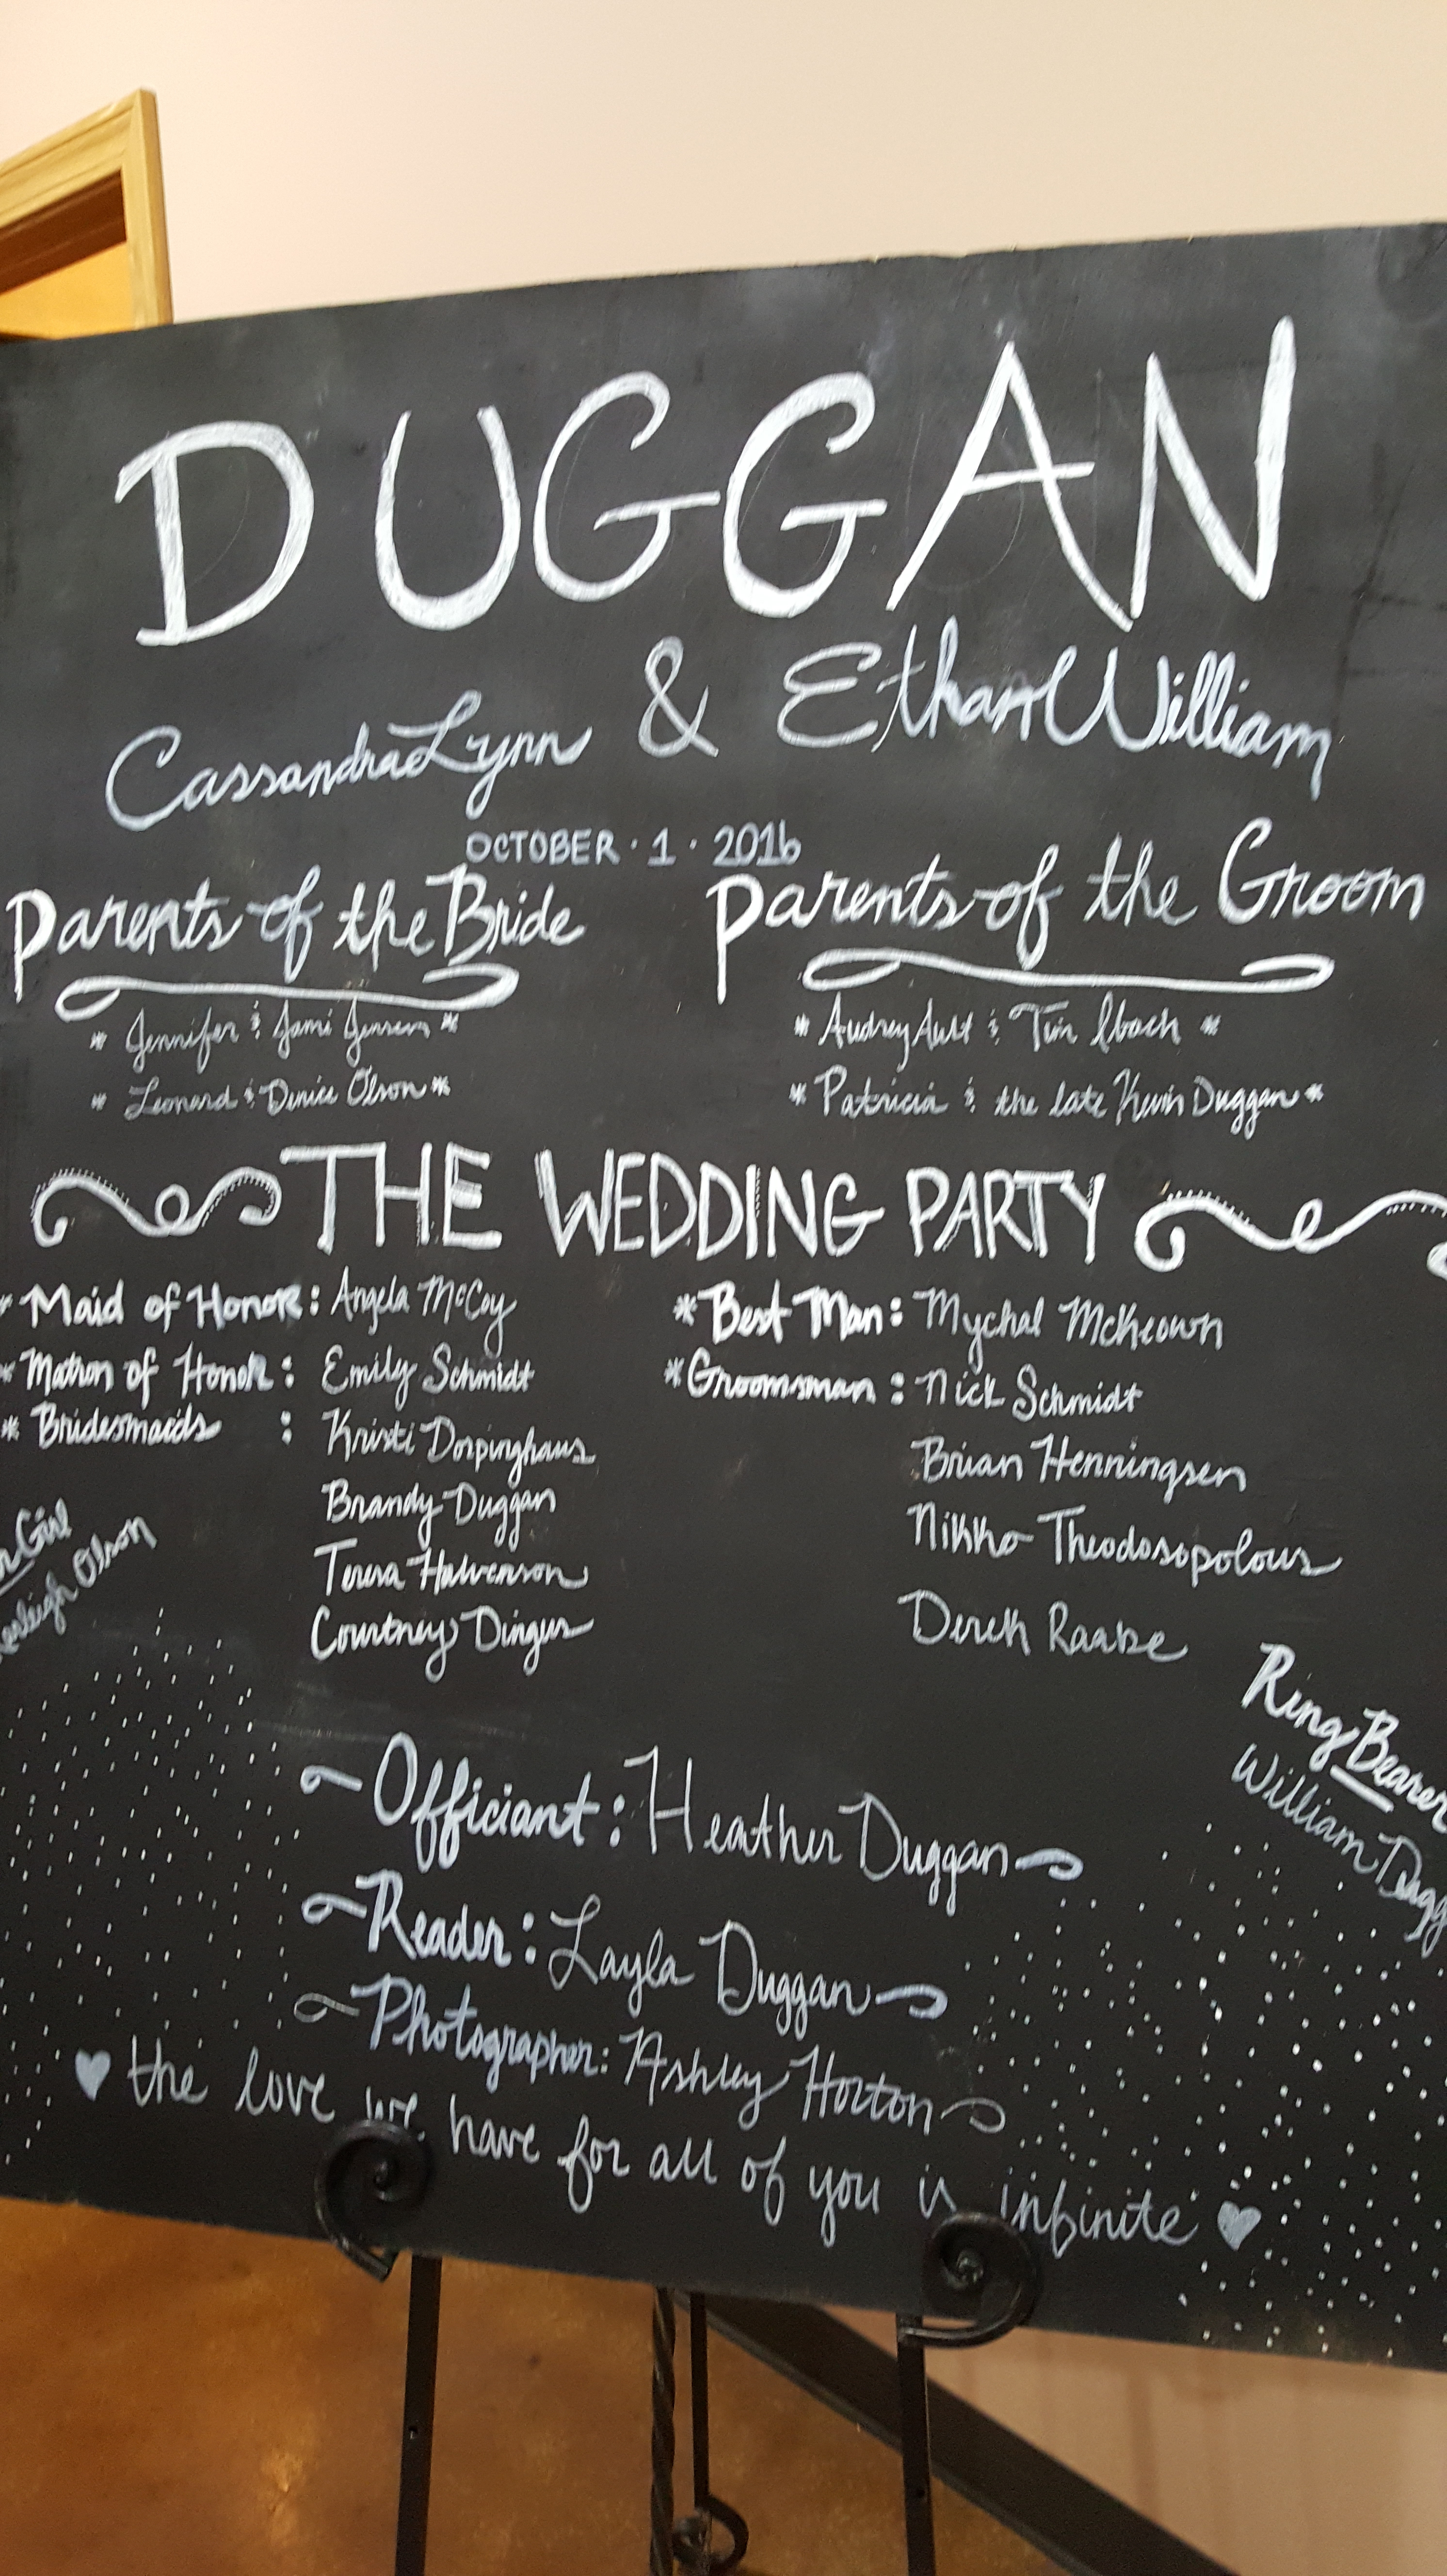 DUGGAN
Cassandra Lynn & Ethan William
OCTOBER · 1 · 2016
Parents of the Bride
* Jennifer & Jami Jensen *
* Leonard & Denice Olson *
Parents of the Groom
* Audrey Ault & Tim Ibach *
* Patricia & the late Kevin Duggan *
THE WEDDING PARTY
* Maid of Honor: Angela McCoy
* Matron of Honor: Emily Schmidt
* Bridesmaids : Kristi Dorpinghaus
Brandy Duggan
Teresa Halverson
Courtney Dingus
* Best Man: Mychal McKeown
* Groomsman: Nick Schmidt
Brian Henningsen
Nikko Theodosopolous
Derek Raabe
Girl
Olson
Ring Bearer
William
Officiant: Heather Duggan
Reader: Layla Duggan
Photographer: Ashley Horton
♥ the love we have for all of you is infinite ♥